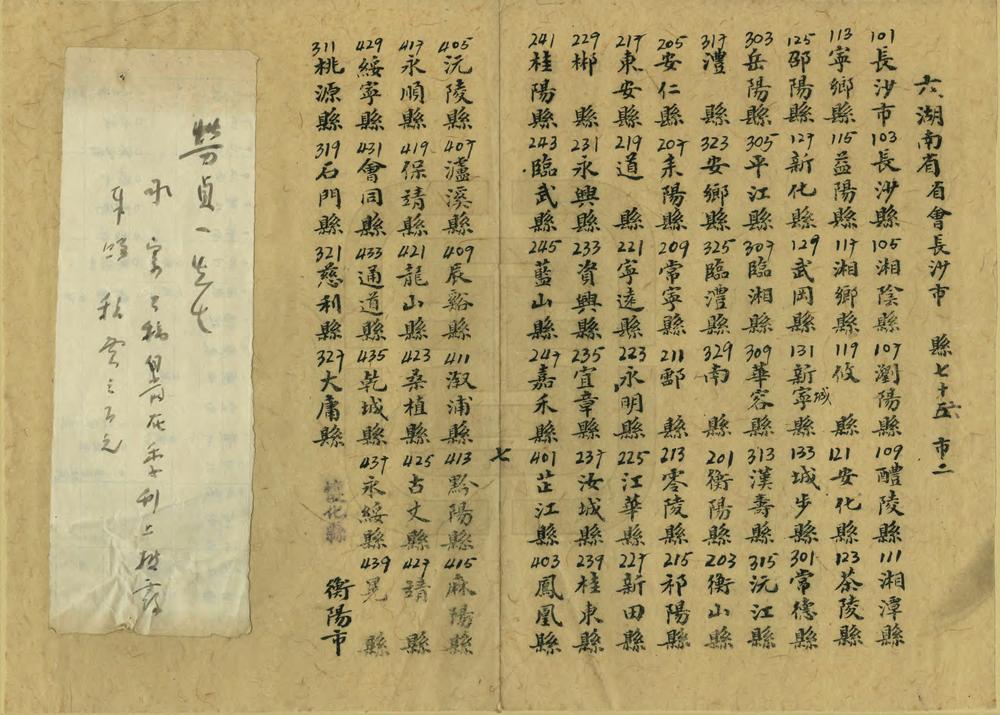 六、湖南省省會長沙市 縣七十五六 市二
101長沙市 103長沙縣 105湘陰縣 107瀏陽縣 109醴陵縣 111湘潭縣
113寧鄉縣 115益陽縣 117湘鄉縣 119攸縣 121安化縣 123茶陵縣
125邵陽縣 127新化縣 129武岡縣 131新寧縣 133城步縣 301常德縣
城
303岳陽縣 305平江縣 307臨湘縣 309華容縣 313漢壽縣 315沅江縣
317澧縣 323安鄉縣 325臨澧縣 329南縣 201衡陽縣 203衡山縣
205安仁縣 207耒陽縣 209常寧縣 211酃縣 213零陵縣 215祁陽縣
217東安縣 219道縣 221寧遠縣 223永明縣 225江華縣 227新田縣
229郴縣 231永興縣 233資興縣 235宜章縣 237汝城縣 239桂東縣
241桂陽縣 243臨武縣 245藍山縣 247嘉禾縣 401芷江縣 403鳳凰縣
七
405沅陵縣 407瀘溪縣 409辰谿縣 411溆浦縣 413黔陽縣 415麻陽縣
417永順縣 419保靖縣 421龍山縣 423桑植縣 425古丈縣 427靖縣
429綏寧縣 431會同縣 433通道縣 435乾城縣 437永綏縣 439晃縣
311桃源縣 319石門縣 321慈利縣 327大庸縣 衡陽市
勞貞一先生